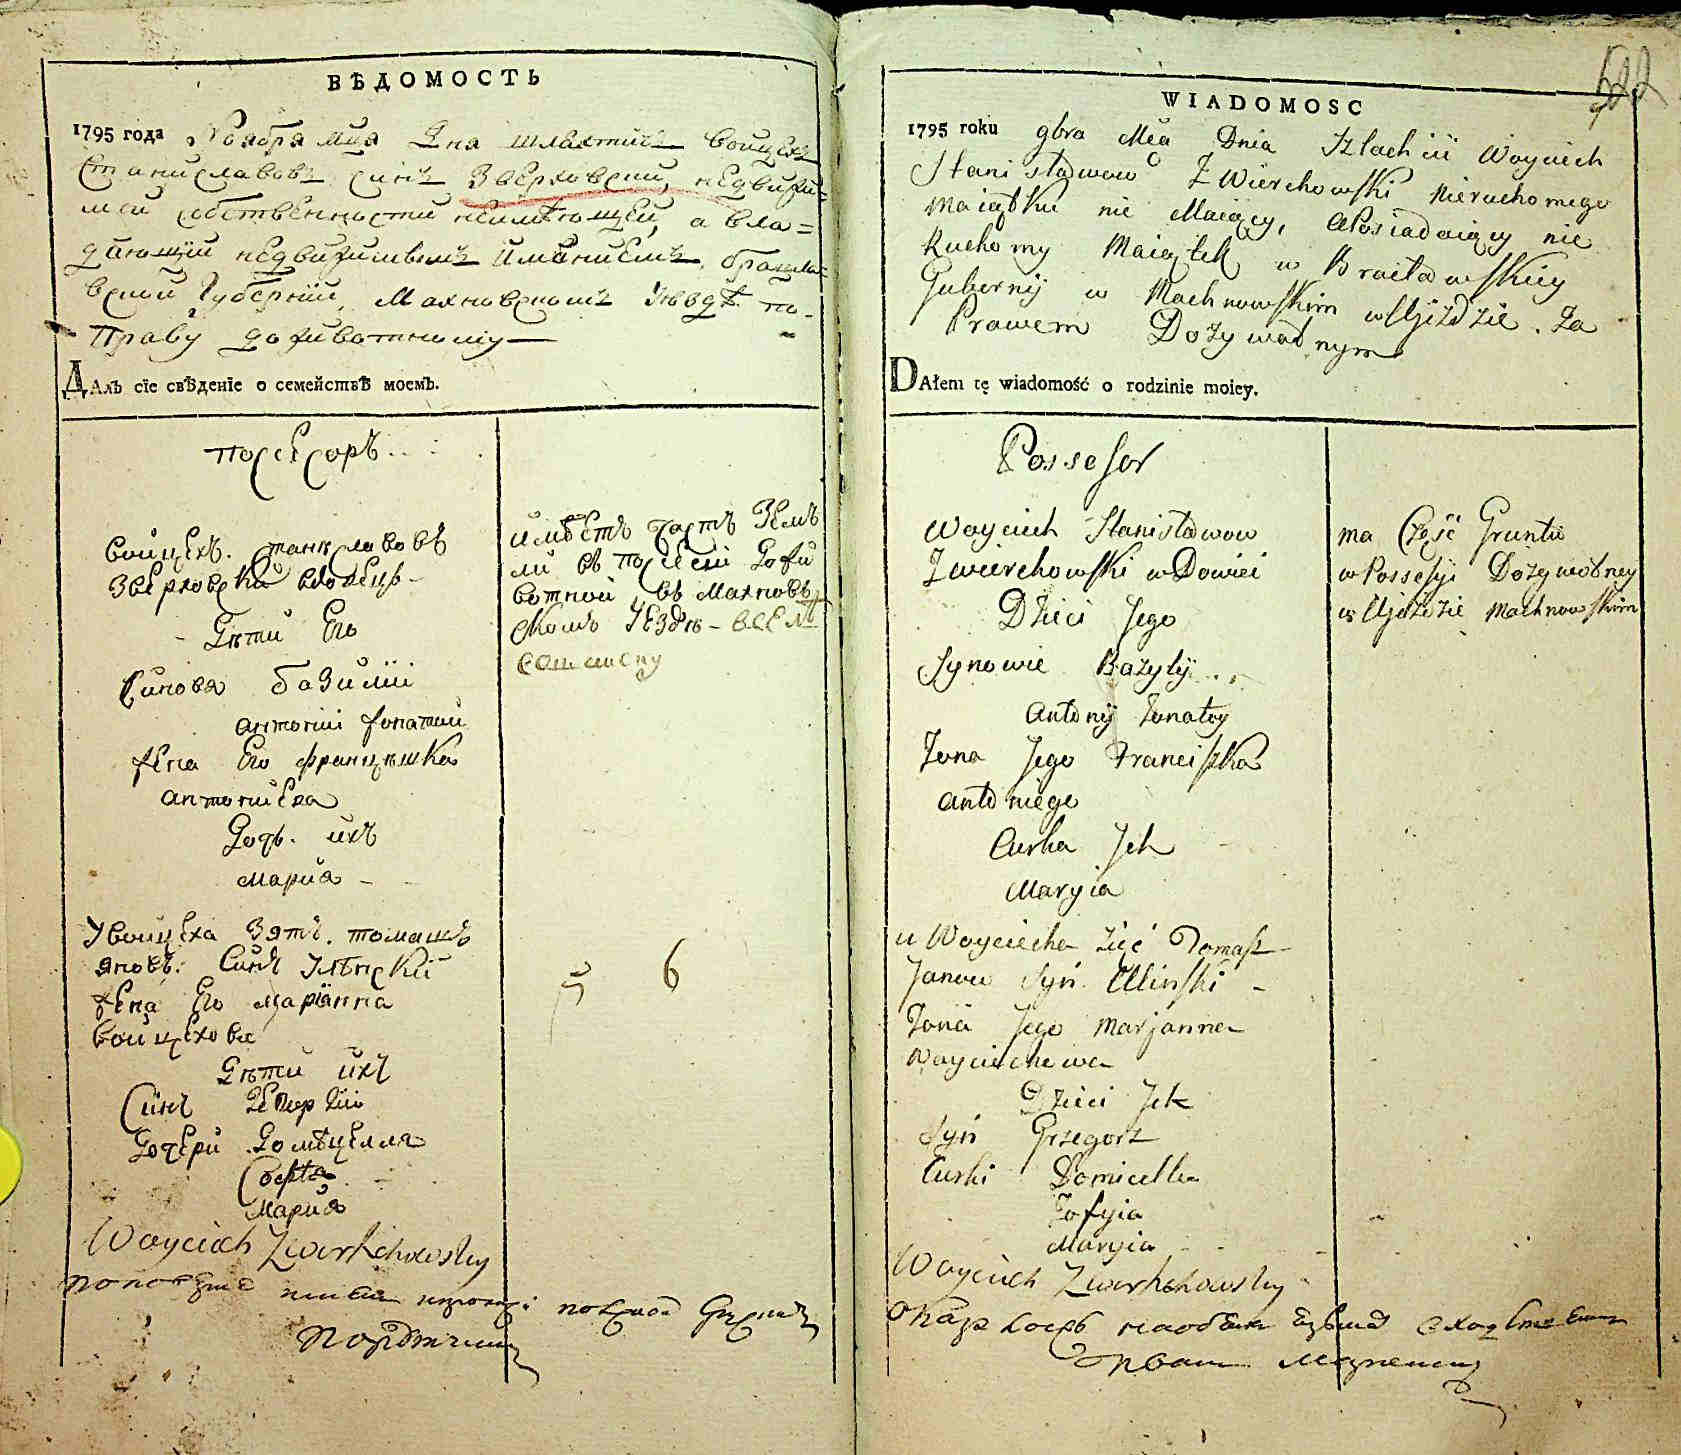 ВѢДОМОСТЬ
1795 года Ноября мца Дня шляхтичъ Войцехъ
Станиславовъ синъ Зверховский, недвижи=
мой собственности неимѣющей, а вла=
дающий недвижимымъ имѣниемъ, брацлав=
ской Губернии, Махновскомъ Уездѣ по
Праву доживотному
ДАлъ сїе свѣденїе о семействѣ моемъ.
посесоръ
Войцехъ. Станиславовъ
Зверховский вдовецъ
Дѣти Его
Синовя базилий
антоний жонатий
жена Его францишка
антониева
Дочь. ихъ
мария
У войцеха Зять. томашъ
яновъ. Синъ Улѣнский
жена Его марїанна
войцехова
Дѣти ихъ
Синъ
Дочери Домѣцелля
Софія
Мария
имѣетъ частъ Земъ
ли въ посесїи Дожи
вотной въ Махновъ
скомъ Уездѣ
5 6
Woyciech Zwirkchowsky
WIADOMOSC
522
1795 roku 9bra Mca Dnia Szlachcic Woyciech
Stanisławow Zwierchowski Nieruchomego
Maiątku nie Maiący, a Posiadaiący nie
Ruchomy Maiątek w Bracławskiey
Gubernij w Machnowskim Ujeździe. Za
Prawem Dożywotnym
DAłem tę wiadomość o rodzinie moiey.
Possesor
Woyciech Stanisławow
Zwierchowski wDowiec
Dzieci Jego
Synowie Bazylij
Antonij Żonaty
Żona Jego Franciszka
Antoniego
Curka Jch
Maryia
u Woyciecha Zięć Tomasz
Janow Syn Ulinski
Żona Jego Marjanna
Woyciechowa
Dzieci Jch
Syn Grzegorz
Curki Domicella
Zofyia
Maryia
ma Część Gruntu
w Possesyi Dożywotney
w Ujeździe Machnowskim
Woyciech Zwirkchowsky